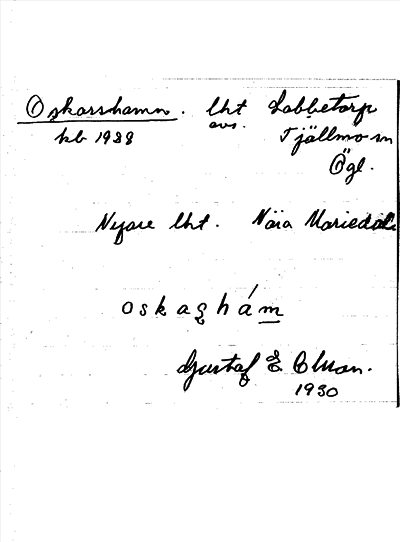 Oskarshamn. lht Labbetorp
kb 1988 avs. Tjällmo sn
Ögl.
Nyare lht. Nära Mariedal
oskaghám
Gustaf E Olson.
1930